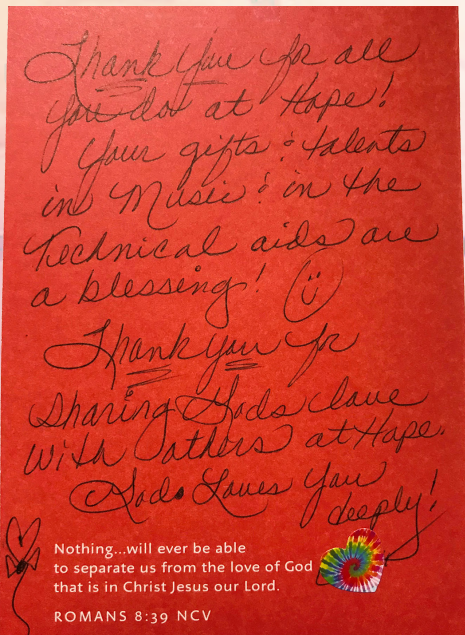 Thank You for all
you do at Hope!
Your gifts & talents
in Music & in the
Technical aids are
a blessing!
Thank you for
Sharing Gods love
With others at Hope.
Gods Loves You
deeply!
Nothing...will ever be able
to separate us from the love of God
that is in Christ Jesus our Lord.
ROMANS 8:39 NCV